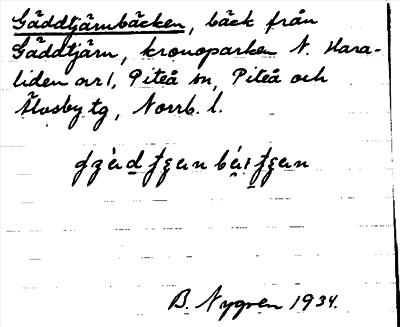 Gäddtjärnbäcken, bäck från
Gäddtjärn, kronoparken N. Hara-
liden arl, Piteå sn, Piteå och
Älvsby tg, Norrb. l.
B. Nygren 1934.